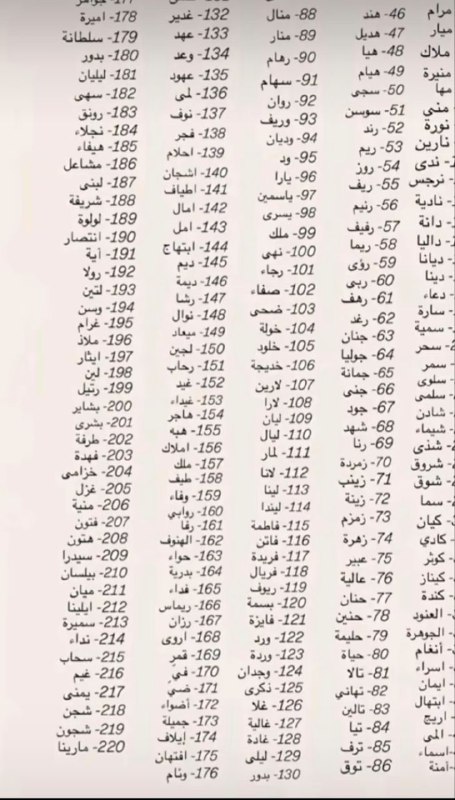 مرام
ميار
ملاك
منيرة
مها
منى
نورة
نارين
ندى
نرجس
نادية
دانة
داليا
ديانا
دينا
دعاء
سارة
سمية
سحر
سمر
سلوى
سلمى
شادن
شيماء
شذى
شروق
شوق
سما
كيان
كادي
كوثر
كيناز
كندة
العنود
الجوهرة
أنغام
اسراء
ايمان
ابتهال
اريج
المى
اسماء
آمنة
46- هند
47- هديل
48- هيا
49- هيام
50- سجى
51- سوسن
52- رند
53- ريم
54- روز
55- ريف
56- رنيم
57- رفيف
58- ريما
59- رؤى
60- ربى
61- رهف
62- رغد
63- جنان
64- جوليا
65- جمانة
66- جنى
67- جود
68- شهد
69- رنا
70- زمردة
71- زينب
72- زينة
73- زمزم
74- زهرة
75- عبير
76- عالية
77- حنان
78- حنين
79- حليمة
80- حياة
81- تالا
82- تهاني
83- تالين
84- تيا
85- ترف
86- توق
88- منال
89- منار
90- رهام
91- سهام
92- روان
93- وريف
94- وديان
95- ود
96- يارا
97- ياسمين
98- يسرى
99- ملك
100- نهى
101- رجاء
102- صفاء
103- ضحى
104- خولة
105- خلود
106- خديجة
107- لارين
108- لارا
109- ليان
110- ليال
111- لمار
112- لانا
113- لينا
114- ليندا
115- فاطمة
116- فاتن
117- فريدة
118- فريال
119- ريوف
120- بسمة
121- فايزة
122- ورد
123- وردة
124- وجدان
125- ذكرى
126- غلا
127- غالية
128- غادة
129- ليلى
130- بدور
132- غدير
133- عهد
134- وعد
135- عهود
136- لمى
137- نوف
138- فجر
139- احلام
140- اشجان
141- اطياف
142- امال
143- امل
144- ابتهاج
145- ديم
146- ديمة
147- رشا
148- نوال
149- ميعاد
150- لجين
151- رحاب
152- غيد
153- غيداء
154- هاجر
155- هبه
156- املاك
157- ملك
158- طيف
159- وفاء
160- روابي
161- رفا
162- الهنوف
163- حواء
164- بدرية
165- فداء
166- ريماس
167- رزان
168- اروى
169- قمر
170- في
171- ضي
172- أضواء
173- جميلة
174- إيلاف
175- افتهان
176- وئام
177- جواهر
178- اميرة
179- سلطانة
180- بدور
181- ليليان
182- سهى
183- رونق
184- نجلاء
185- هيفاء
186- مشاعل
187- لبنى
188- شريفة
189- لولوة
190- انتصار
191- آية
192- رولا
193- لتين
194- وسن
195- غرام
196- ملاذ
197- ايثار
198- لين
199- رتيل
200- بشاير
201- بشرى
202- طرفة
203- فهدة
204- خزامى
205- غزل
206- منية
207- فتون
208- هتون
209- سيدرا
210- بيلسان
211- ميان
212- ايلينا
213- سميرة
214- نداء
215- سحاب
216- غيم
217- يمنى
218- شجن
219- شجون
220- مارينا